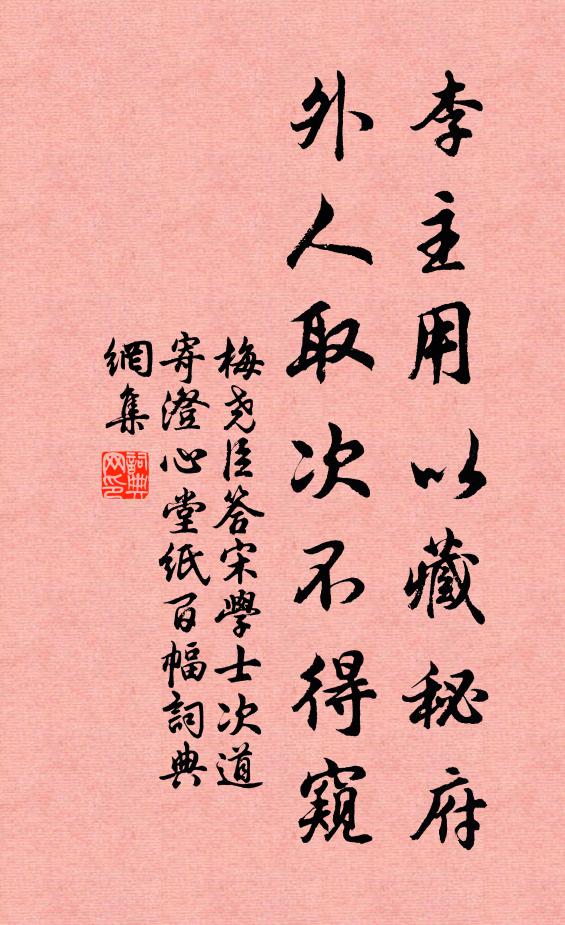 李主用以藏秘府
外人取次不得窺
梅尭臣答宋學士次道
寄澄心堂紙百幅詞典
網集
詞典网印